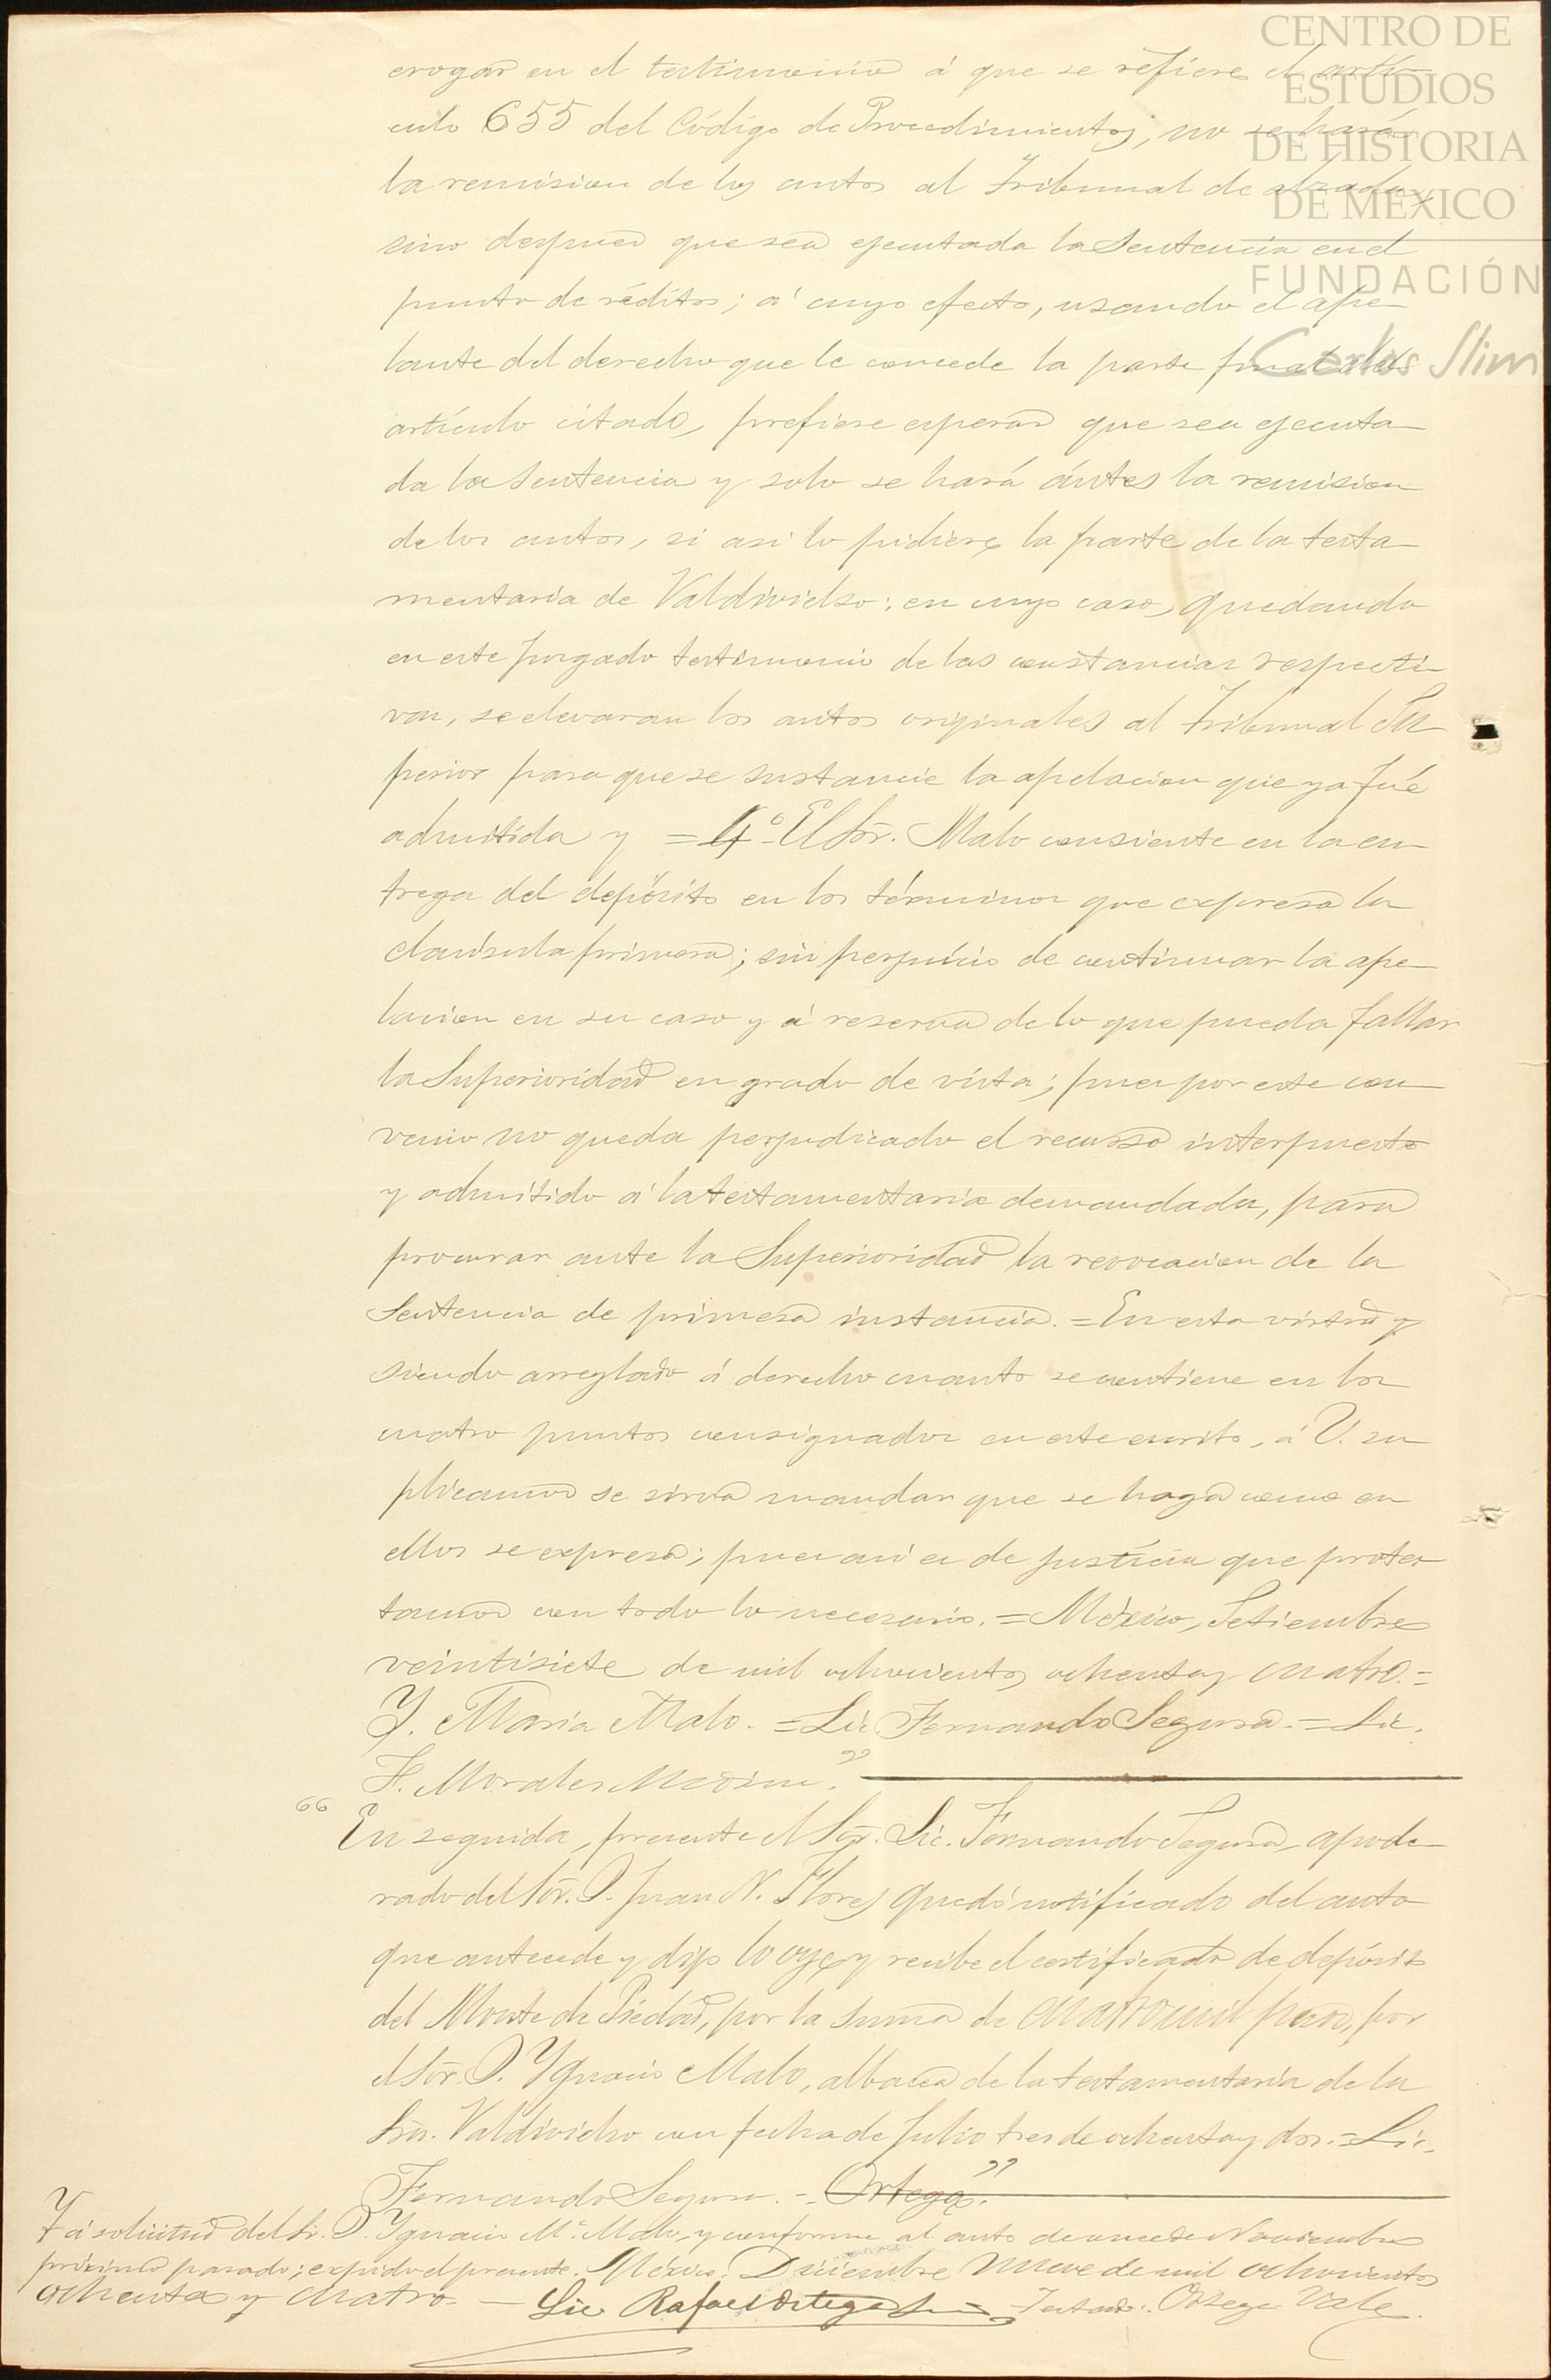 CENTRO DE
ESTUDIOS
DE HISTORIA
DE MÉXICO
FUNDACIÓN
Carlos Slim
erogar en el testimonio á que se refiere el artí-
culo 655 del Código de Procedimientos, no se hará
la remision de los autos al Tribunal de alzada
sino despues que sea ejecutada la Sentencia en el
punto de réditos; á cuyo efecto, usando el ape-
lante del derecho que le concede la parte final del
artículo citado, prefiere esperar que sea ejecuta-
da la Sentencia y solo se hará ántes la remision
de los autos, si asi lo pidiere la parte de la testa-
mentaria de Valdivielso: en cuyo caso, quedando
en este juzgado testimonio de las constancias respecti-
vas, se elevaran los autos originales al Tribunal Su-
perior para que se sustancie la apelacion que ya fué
admitida y =4º El Sõr. Malo consiente en la en-
trega del depósito en los términos que expresa la
clausula primera; sin perjuicio de continuar la ape-
lacion en su caso y á reserva de lo que pueda fallar
la Superioridad en grado de vista; pues por este con-
venio no queda perjudicado el recurso interpuesto
y admitido á la testamentaria demandada, para
procurar ante la Superioridad la revocacion de la
Sentencia de primera instancia. =En esta virtud y
siendo arreglado á derecho cuanto se contiene en los
cuatro puntos consignados en este escrito, á V. su-
plicamos se sirva mandar que se haga como en
ellos se expresa; pues asi es de justicia que protes-
tamos con todo lo necesario. =México, Setiembre
veintisiete de mil ochocientos ochenta y cuatro.=
Y. Maria Malo. =Lic. Fernando Segura. =Lic.
F. Morales Medina."
"En seguida, presente el Sõr. Lic. Fernando Segura, apode-
rado del Sõr. D. Juan N. Flores quedó notificado del auto
que antecede y dijo lo oye y recibe el certificado de depósito
del Monte de Piedad, por la suma de cuatro mil pesos, por
el Sõr. D. Ygnacio Malo, albacea de la testamentaria de la
Sra. Valdivielso con fecha de Julio tres de ochenta y dos.=Lic.
Fernando Segura. =Ortega."
Y á solicitud del Sr. D. Ygnacio Mª. Malo y conforme al auto de once de Noviembre
próximo pasado; expido el presente. México. Diciembre nueve de mil ochocientos
ochenta y cuatro. — Lic Rafael Ortega Testado: Ortega Vale.